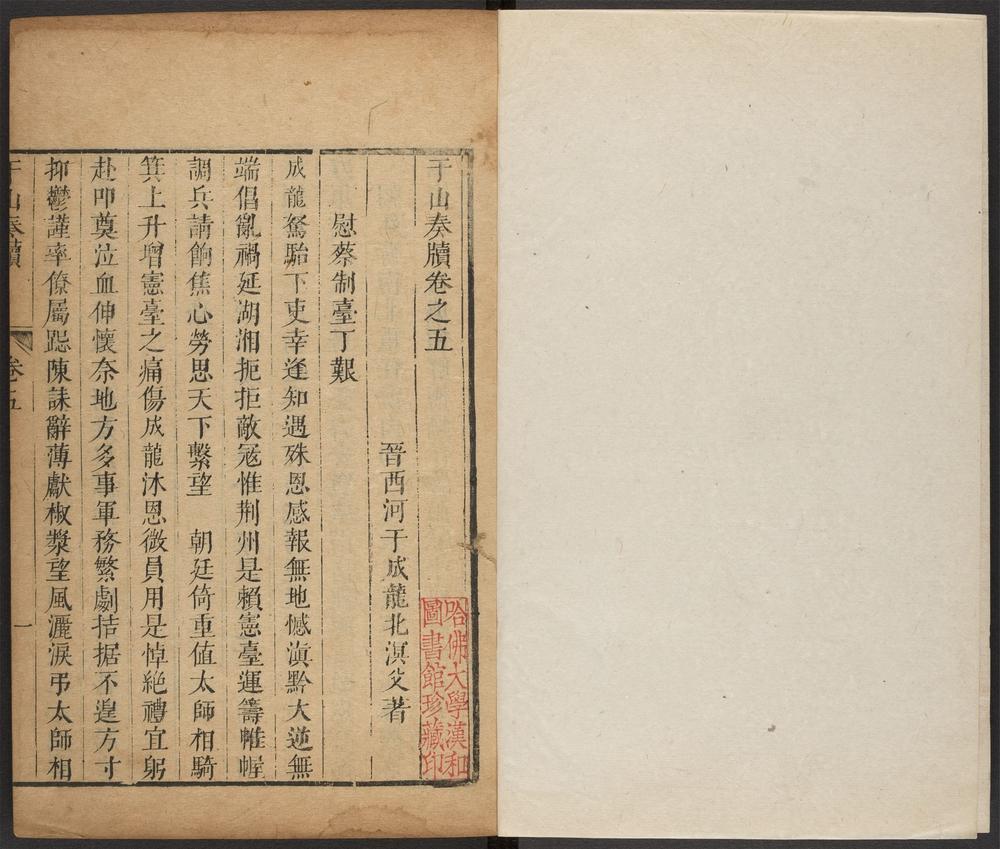 于山奏牘卷之五
晉西河于成龍北溟父著
慰蔡制臺丁艱
成龍駑駘下吏幸逢知遇殊恩感報無地憾滇黔大逆無
端倡亂禍延湖湘扼拒敵冦惟荆州是賴憲臺運籌帷幄
調兵請餉焦心勞思天下繫望　朝廷倚重值太師相騎
箕上升增憲臺之痛傷成龍沐恩微員用是悼絶禮宜躬
赴叩奠泣血伸懷奈地方多事軍務繁劇拮据不遑方寸
抑鬱謹率僚屬跽陳誄辭薄獻椒漿望風灑淚弔太師相
于山奏牘
卷五
一
哈佛大學漢和
圖書館珍藏印